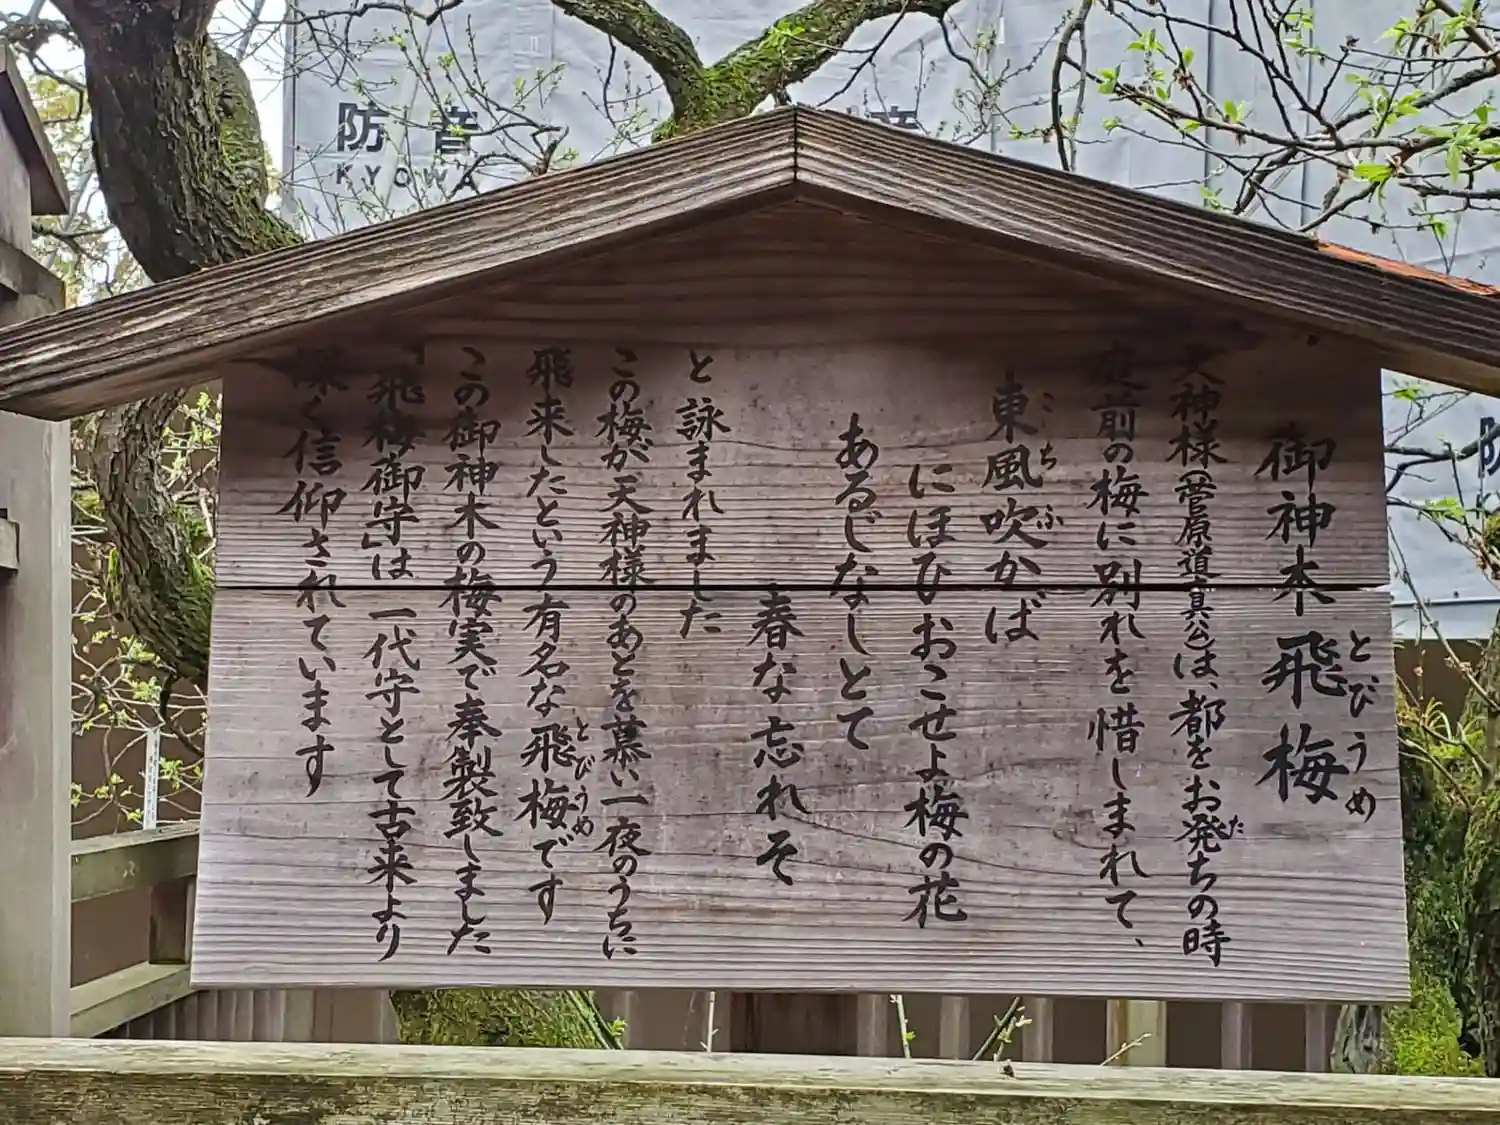 御神木飛梅
とびうめ
天神様(菅原道真公)は、都をお発ちの時
た
庭前の梅に別れを惜しまれて、
東風吹かば
こち ふ
にほひおこせよ梅の花
あるじなしとて
春な忘れそ
と詠まれました
この梅が天神様のあとを慕い一夜のうちに
飛来したという有名な飛梅です
とびうめ
この御神木の梅実で奉製致しました
「飛梅御守」は一代守として古来より
深く信仰されています
防音
KYOWA
音
防